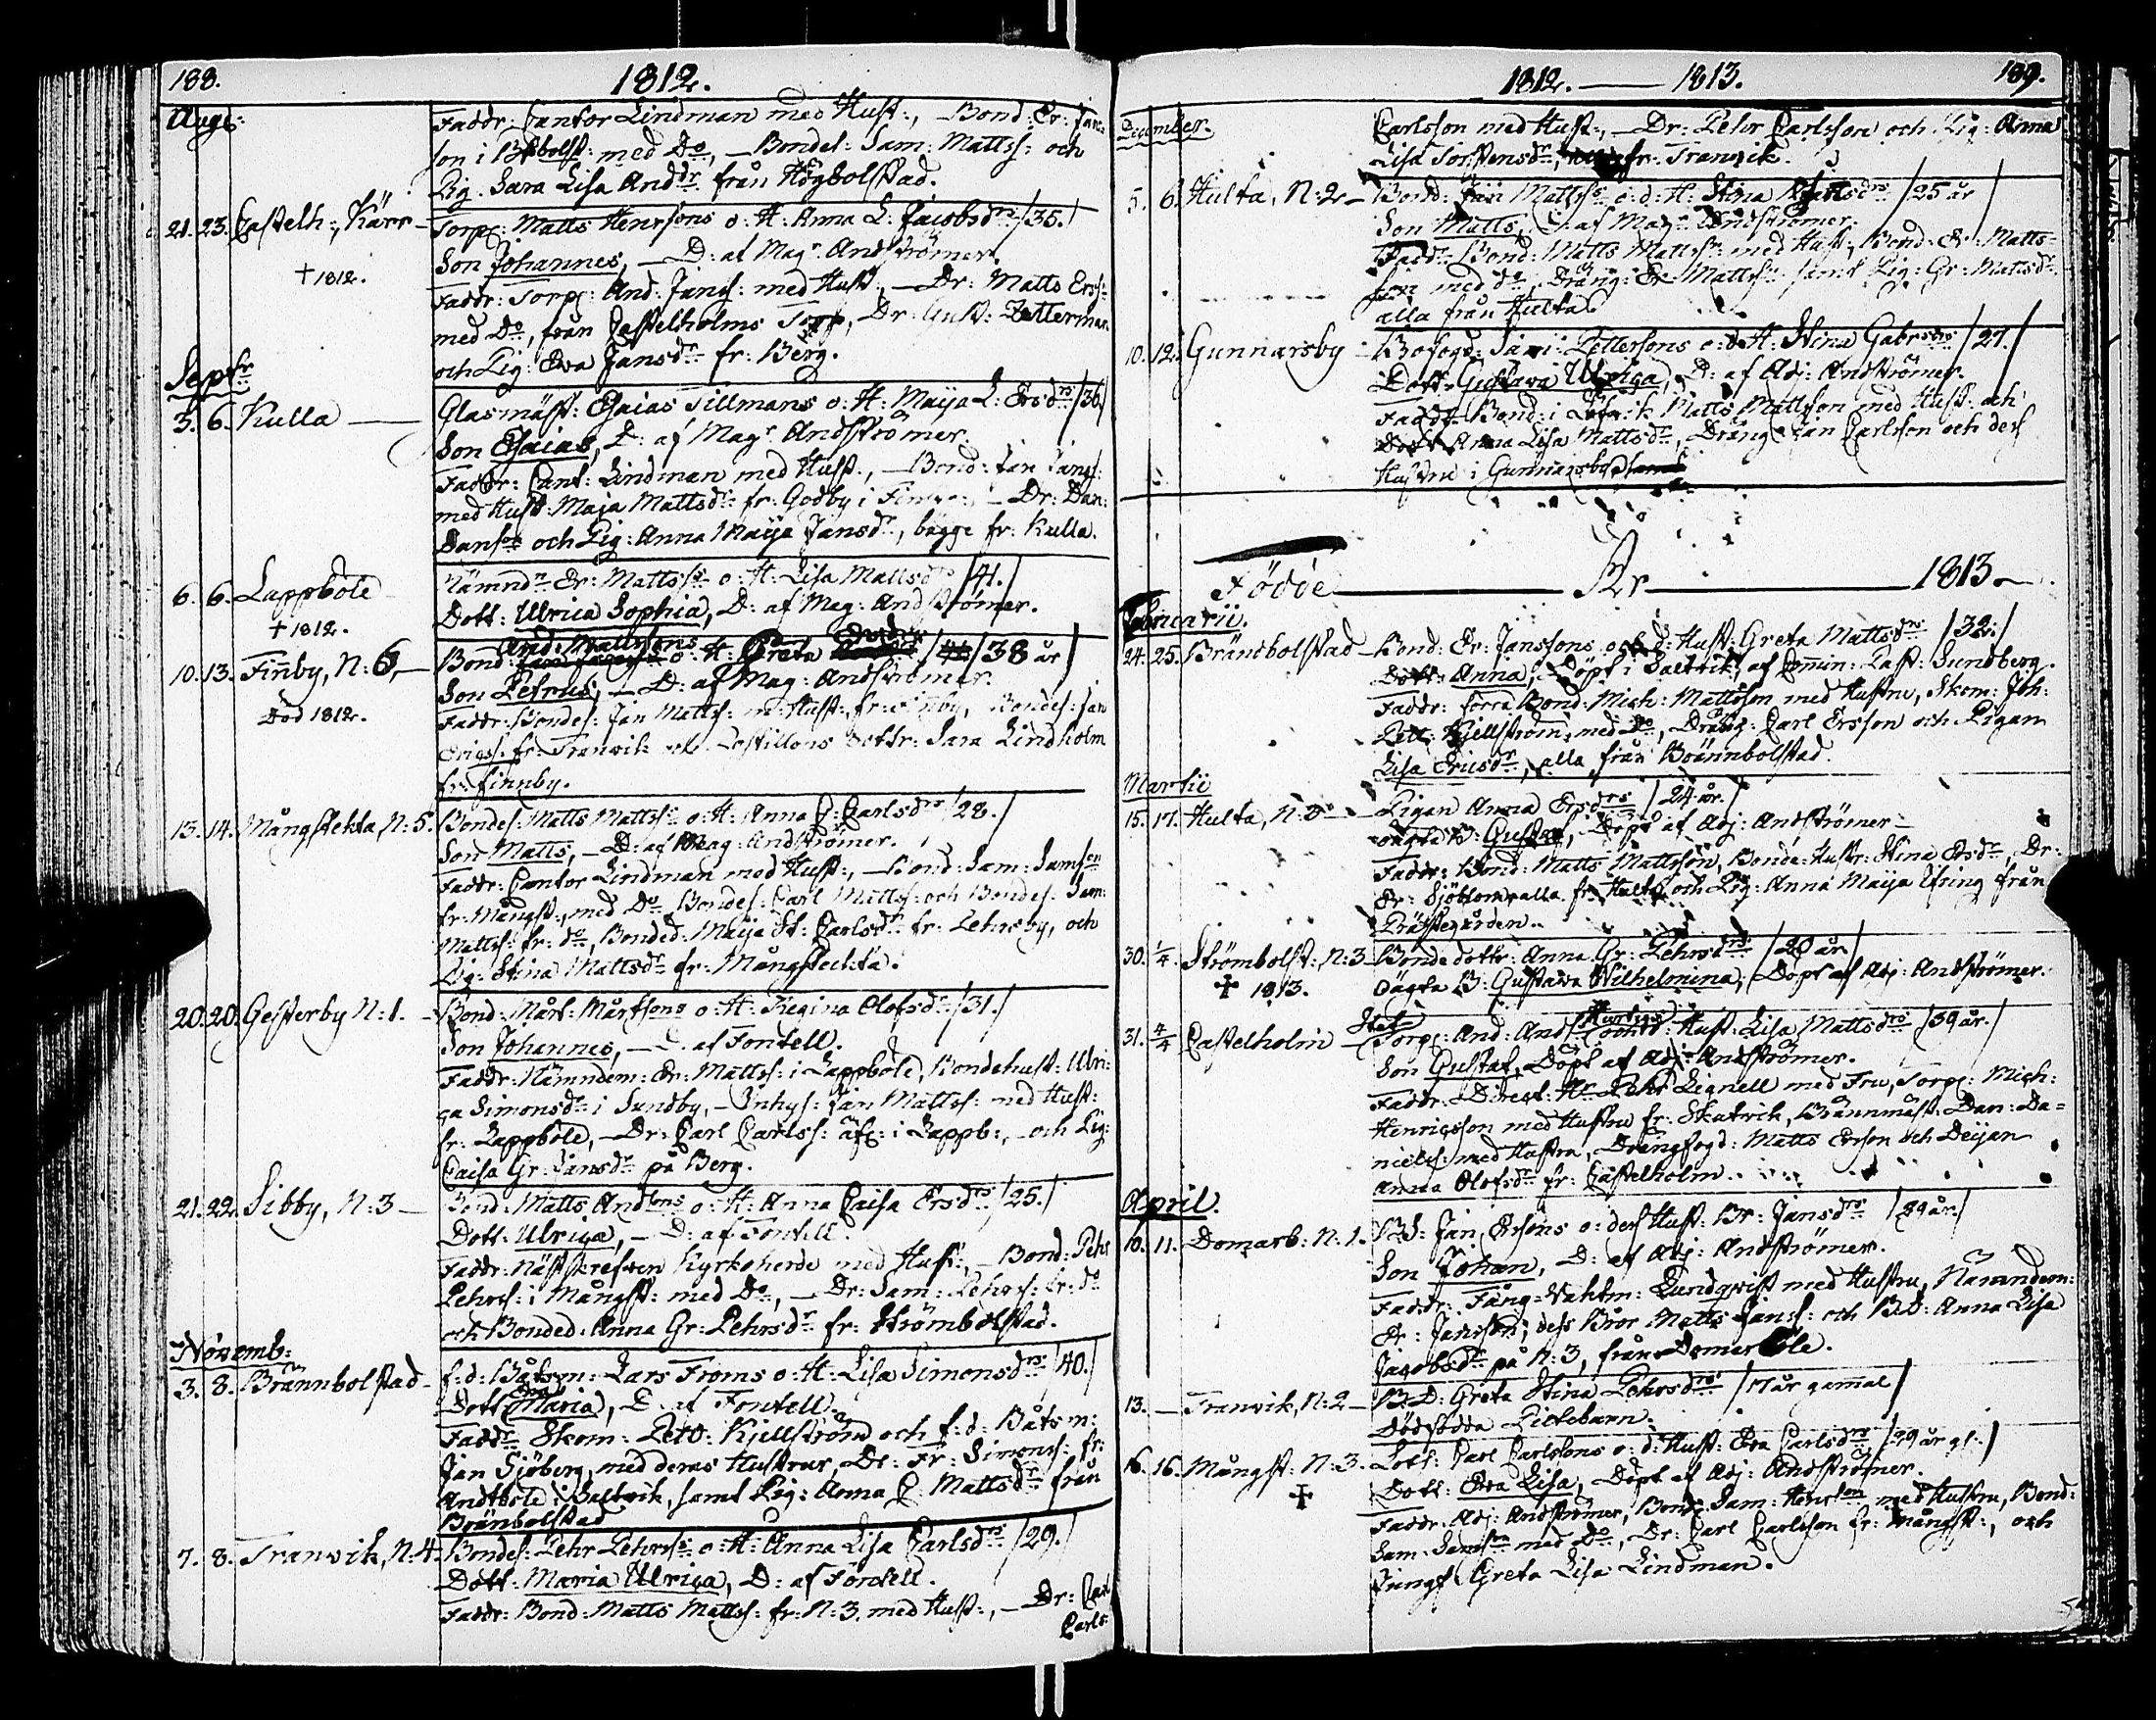 188.
1812.
Aug:
Faddr: Cantor Lindman med Hust:, – Bond: Er: Jans
son i Bolst: med Do, – Bondes: Sam: Mattss: och
Pig. Sara Lisa Anddr från Högbolstad.
21. 23. Castelh:, Kärr – Torp: Matts Henrssons o: H: Anna L: Jacobsdrs /35./
Son Johannes, – D: af Magr Andströmer.
† 1812.
Faddr: Torp: And: Janss: med Hust:, – Dr: Matts Erss:
med Do, från Castelholms Torp, Dr: Gust: Zetterman
och Pig: Eva Jansdr fr: Berg.
Septr
3. 6. Kulla – Glasmäst: Esaias Tillmans o: H: Maija L: Ersdrs /36/
Son Esaias, D: af Magr Andströmer.
Faddr: Cant: Lindman med Hust:, – Bond: Jan Janss:
med Hust: Maja Mattsdr fr: Godby i – Dr: Dan:
Danson och Pig: Anna Maija Jansdr, bägge fr: Kulla.
6. 6. Lappböle – Nämndn Er: Mattss o: H: Lisa Mattsdrs /41./
Dott: Ulrica Sophia, D: af Mag: Andströmer.
† 1812.
And: Mattssons
10. 13. Finby, N: 6, – Bond: o: H: Greta /38 år/
Son Petrus, – D: af Mag: Andströmer.
Död 1812.
Faddr: Bondes: Jan Mattss: m: Hust: fr: Finby, Bondes: Jan
Ericss. fr: Tranvik och Postillons dottr: Sara Lindholm
fr: finnby.
13. 14. Mångstekta, N: 5. Bondes: Matts Mattss: o: H: Anna C: Carlsdrs /28./
Son Matts, – D: af Mag: Andströmer.
Faddr: Cantor Lindman med Hust:, – Bond: Sam: Samson
fr: Mångst:, med Do Bondes: Carl Mattss: och Bondes: Sam:
Mattss: fr: do, Bonded: Maija St: Carlsdr fr: Pehrsby, och
Pig: Stina Mattsdr fr: Mångsteckta.
20. 20. Gesterby N: 1. – Bond: Mårt: Mårtsons o: H: Regina Olofsdr /31./
Son Johannes, – D. af Fontell.
Faddr: Nämndem: Er: Mattss: i Lappböle, Bondehust: Ulri:
ca Simonsdr i Sundby, – Inhys: Jan Mattss: med Hust:
fr: Lappböle, – Dr: Carl Carlss: i Lappb:, – och Pig:
Caisa Gr: Jansdr på Berg.
21. 22. Sibby, N: 3 – Bond: Matts Andsons o: H: Anna Caisa Ersdrs /25./
Dott: Ulrica, – D: af Fontell.
Faddr: Nästskrefven Kyrkoherde med Hust:, – Bond: Pehr
Pehrss: i Mångst: med Do, – Dr: Sam: Pehrss: fr: do
och Bonded: Anna Gr: Pehrsdr fr: Strömbolstad.
Novemb:
3. 8. Brännbolstad – f: d: Båtsm: Lars Froms o: H: Lisa Simonsdrs /40./
Dott: Maria, D. af Fontell.
Faddr Skom: Pett: Kjellström och f: d: Båtsm:
Jan Sjöberg, med deras Hustrur, Dr: Fr: Simonss: fr:
Andtböle i Saltvik, samt Pig: Anna C: Mattsdr från
Bränbolstad
7. 8. Tranvik, N: 4. Bondes: Pehr Pehrss: o: H: Anna Lisa Carlsdrs /29./
Dott: Maria Ulrica, D: af Fontell.
Faddr: Bond: Matts Mattss: fr: N: 3. med Hust:, – Dr: Carl
Carls:
1812. – 1813.
189.
December.
Carlsson med Hust:, – Dr: Pehr Carlsson och Pig: Anna
Lisa Torstensdr, fr: Tranvik.
5. 6. Hulta, N: 2 – Bond: Jan Mattss o: d: H: Stina Mattsdrs /25 år/
Son Matts, D. af Magr Andströmer.
Faddr Bond: Matts Mattss med Hust:, Bond: Er: Matts-
son med do, Dräng: Er Mattss: samt Pig: Gr: Mattsdr
alla från Hulta.
10. 12. Gunnarsby – Bofogd: Sam: Petterssons o: d: H: Stina Gabrsdrs /27./
Dott: Gustava Ulrica, D: af Adj: Andströmer.
Faddr Bond: i Matts Mattsson med Hust: och
Dott: Anna Lisa Mattsdr, Dräng: Jan Carlsson och dess
Hustru i Gunnarsby
Födde År 1813.
Februarii.
24. 25. Brändbolstad – Bond: Er: Janssons och d: Hust: Greta Mattsdrs /32./
Dott: Anna, Döpt i Saltvik, af Commin: Past: Sundberg.
Faddr: förra Bond: Mich: Mattsson med Hustru, Skom: Joh:
Pett: Kjellström, med Do, Dräng: Carl Ersson och Pigan
Lisa Ericsdr, alla från Brännbolstad.
Martii
15. 17. Hulta, N: 3 – Pigan Anna Ersdrs /24 år./
oägta B: Gustaf, Döpt af Adj: Andströmer.
Faddr: Bond: Matts Mattsson, Bonde: Hustr: Stina Ersdr, Dr:
Er: Sjöblom alla fr. Hulta och Pig: Anna Maija Efring från
Prästegården.
30. 1/4 Strömbolst:, N: 3 Bondedottr: Anna Gr: Pehrsdrs /20 år/
✝ 1813.
oägta B: Gustava Wilhelmina, Döpt af Adj: Andströmer.
31. 4/4 Castelholm – Stat Torp: And: Ands: och d: Hust: Lisa Mattsdrs /39 år./
Son Gustaf, Döpt af Adj: Andströmer.
Faddr: Direct: Hr Pehr Lignell med Fru, Torp: Mich:
Henricsson med Hustru fr: Skatvik, Brännmäst: Dan: Da-
nielss: med Hustru, Drängfogd: Matts Ersson och Deijan
Anna Olofsdr fr: Castelholm.
April.
10. 11. Domarb: N: 1. Bd: Jan Ersons o: dess Hust: Br: Jansdrs /29 år/
Son Johan, D: af Adj: Andströmer.
Faddr: Fång-Vaktm: Lundqvist med Hustru, Nämndem:
Er: Jansson, dess Bror Matts Janss: och B.D: Anna Lisa
Jacobsdr på N: 3, från Domarböle.
13. – Tranvik, N: 2 – B.D: Greta Stina Pehrsdrs /17 år gammal/
Dödfödda Pickebarn.
16. 16. Mångst: N: 3. Lots: Carl Carlssons o: d: Hust: Eva Carlsdrs /29 år gl:/
✝
Dott: Eva Lisa, Döpt af Adj: Andströmer.
Faddr: Adj: Andströmer, Bond: Sam: Henrsson med Hustru, Bond:
Sam: Samson med Do, Dr: Carl Carlsson fr: Mångst:, och
Jungf: Greta Lisa Lindman.